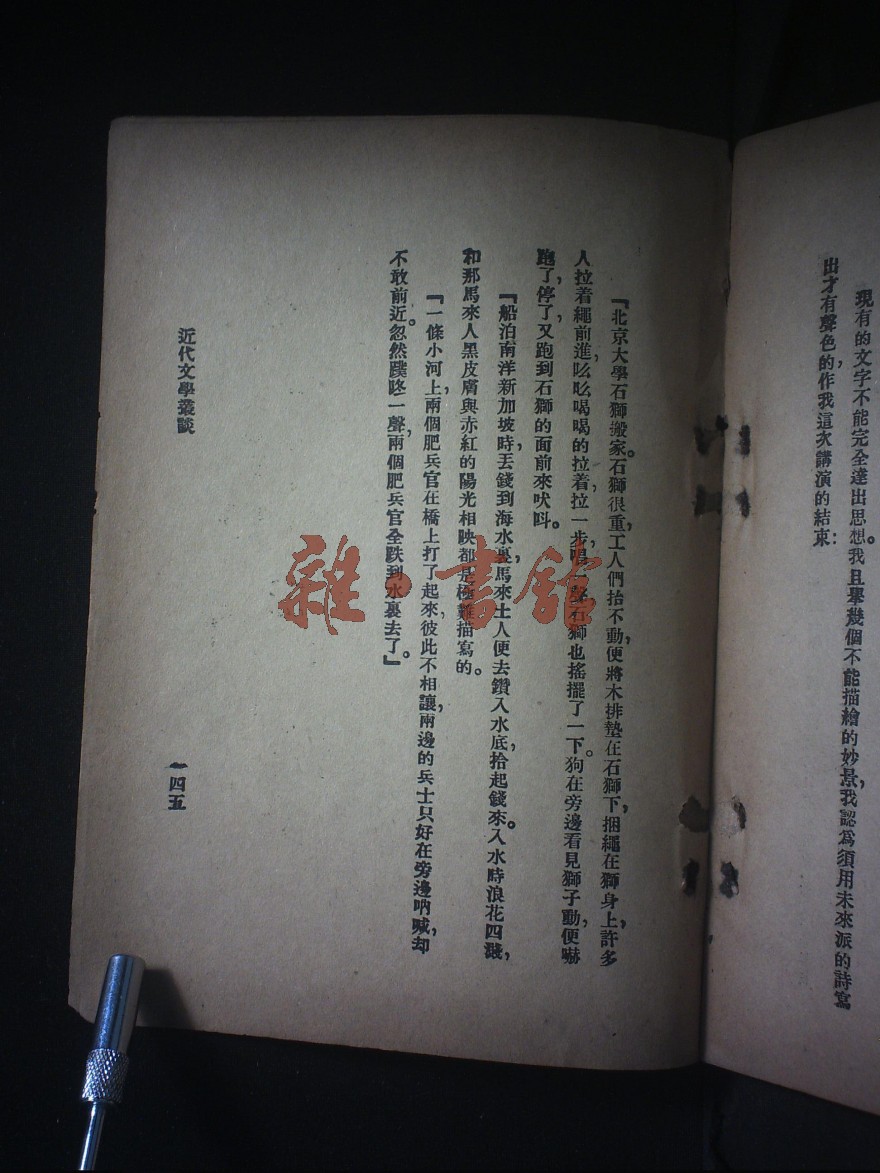 現有的文字不能完全達出思想。我且舉幾個不能描繪的妙景，我認爲須用未來派的詩寫
出才有聲色的，作我這次講演的結束：
『北京大學石獅搬家。石獅很重，工人們抬不動，便將木排墊在石獅下，捆繩在獅身上，許多
人拉着繩前進，吆吆喝喝的拉着，拉一步，唱一聲，石獅也搖擺了一下。狗在旁邊看見獅子動，便嚇
跑了，停了，又跑到石獅的面前來吠呌。
『船泊南洋新加坡時，丟錢到海水裏，馬來土人便去鑽入水底，拾起錢來。入水時浪花四濺，
和那馬來人黑皮膚與赤紅的陽光相映，都是極難描寫的。
『一條小河上，兩個肥兵官在橋上打了起來，彼此不相讓，兩邊的兵士只好在旁邊吶喊，却
不敢前近。忽然蹼咚一聲，兩個肥兵官全跌到水裏去了。』
近代文學叢談
一四五
雜·書館